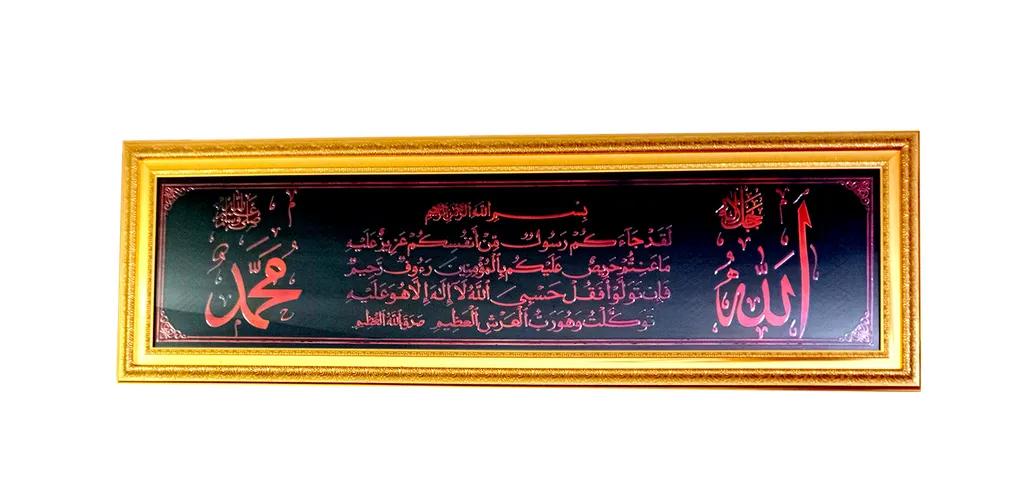 الله جل جلاله
بسم الله الرحمن الرحيم
لَقَدْ جَاءَكُمْ رَسُولٌ مِّنْ أَنفُسِكُمْ عَزِيزٌ عَلَيْهِ
مَا عَنِتُّمْ حَرِيصٌ عَلَيْكُم بِالْمُؤْمِنِينَ رَءُوفٌ رَّحِيمٌ
فَإِن تَوَلَّوْا فَقُلْ حَسْبِيَ اللَّهُ لَا إِلَٰهَ إِلَّا هُوَ عَلَيْهِ
تَوَكَّلْتُ وَهُوَ رَبُّ الْعَرْشِ الْعَظِيمِ صدق الله العظيم
محمد صلى الله عليه وسلم